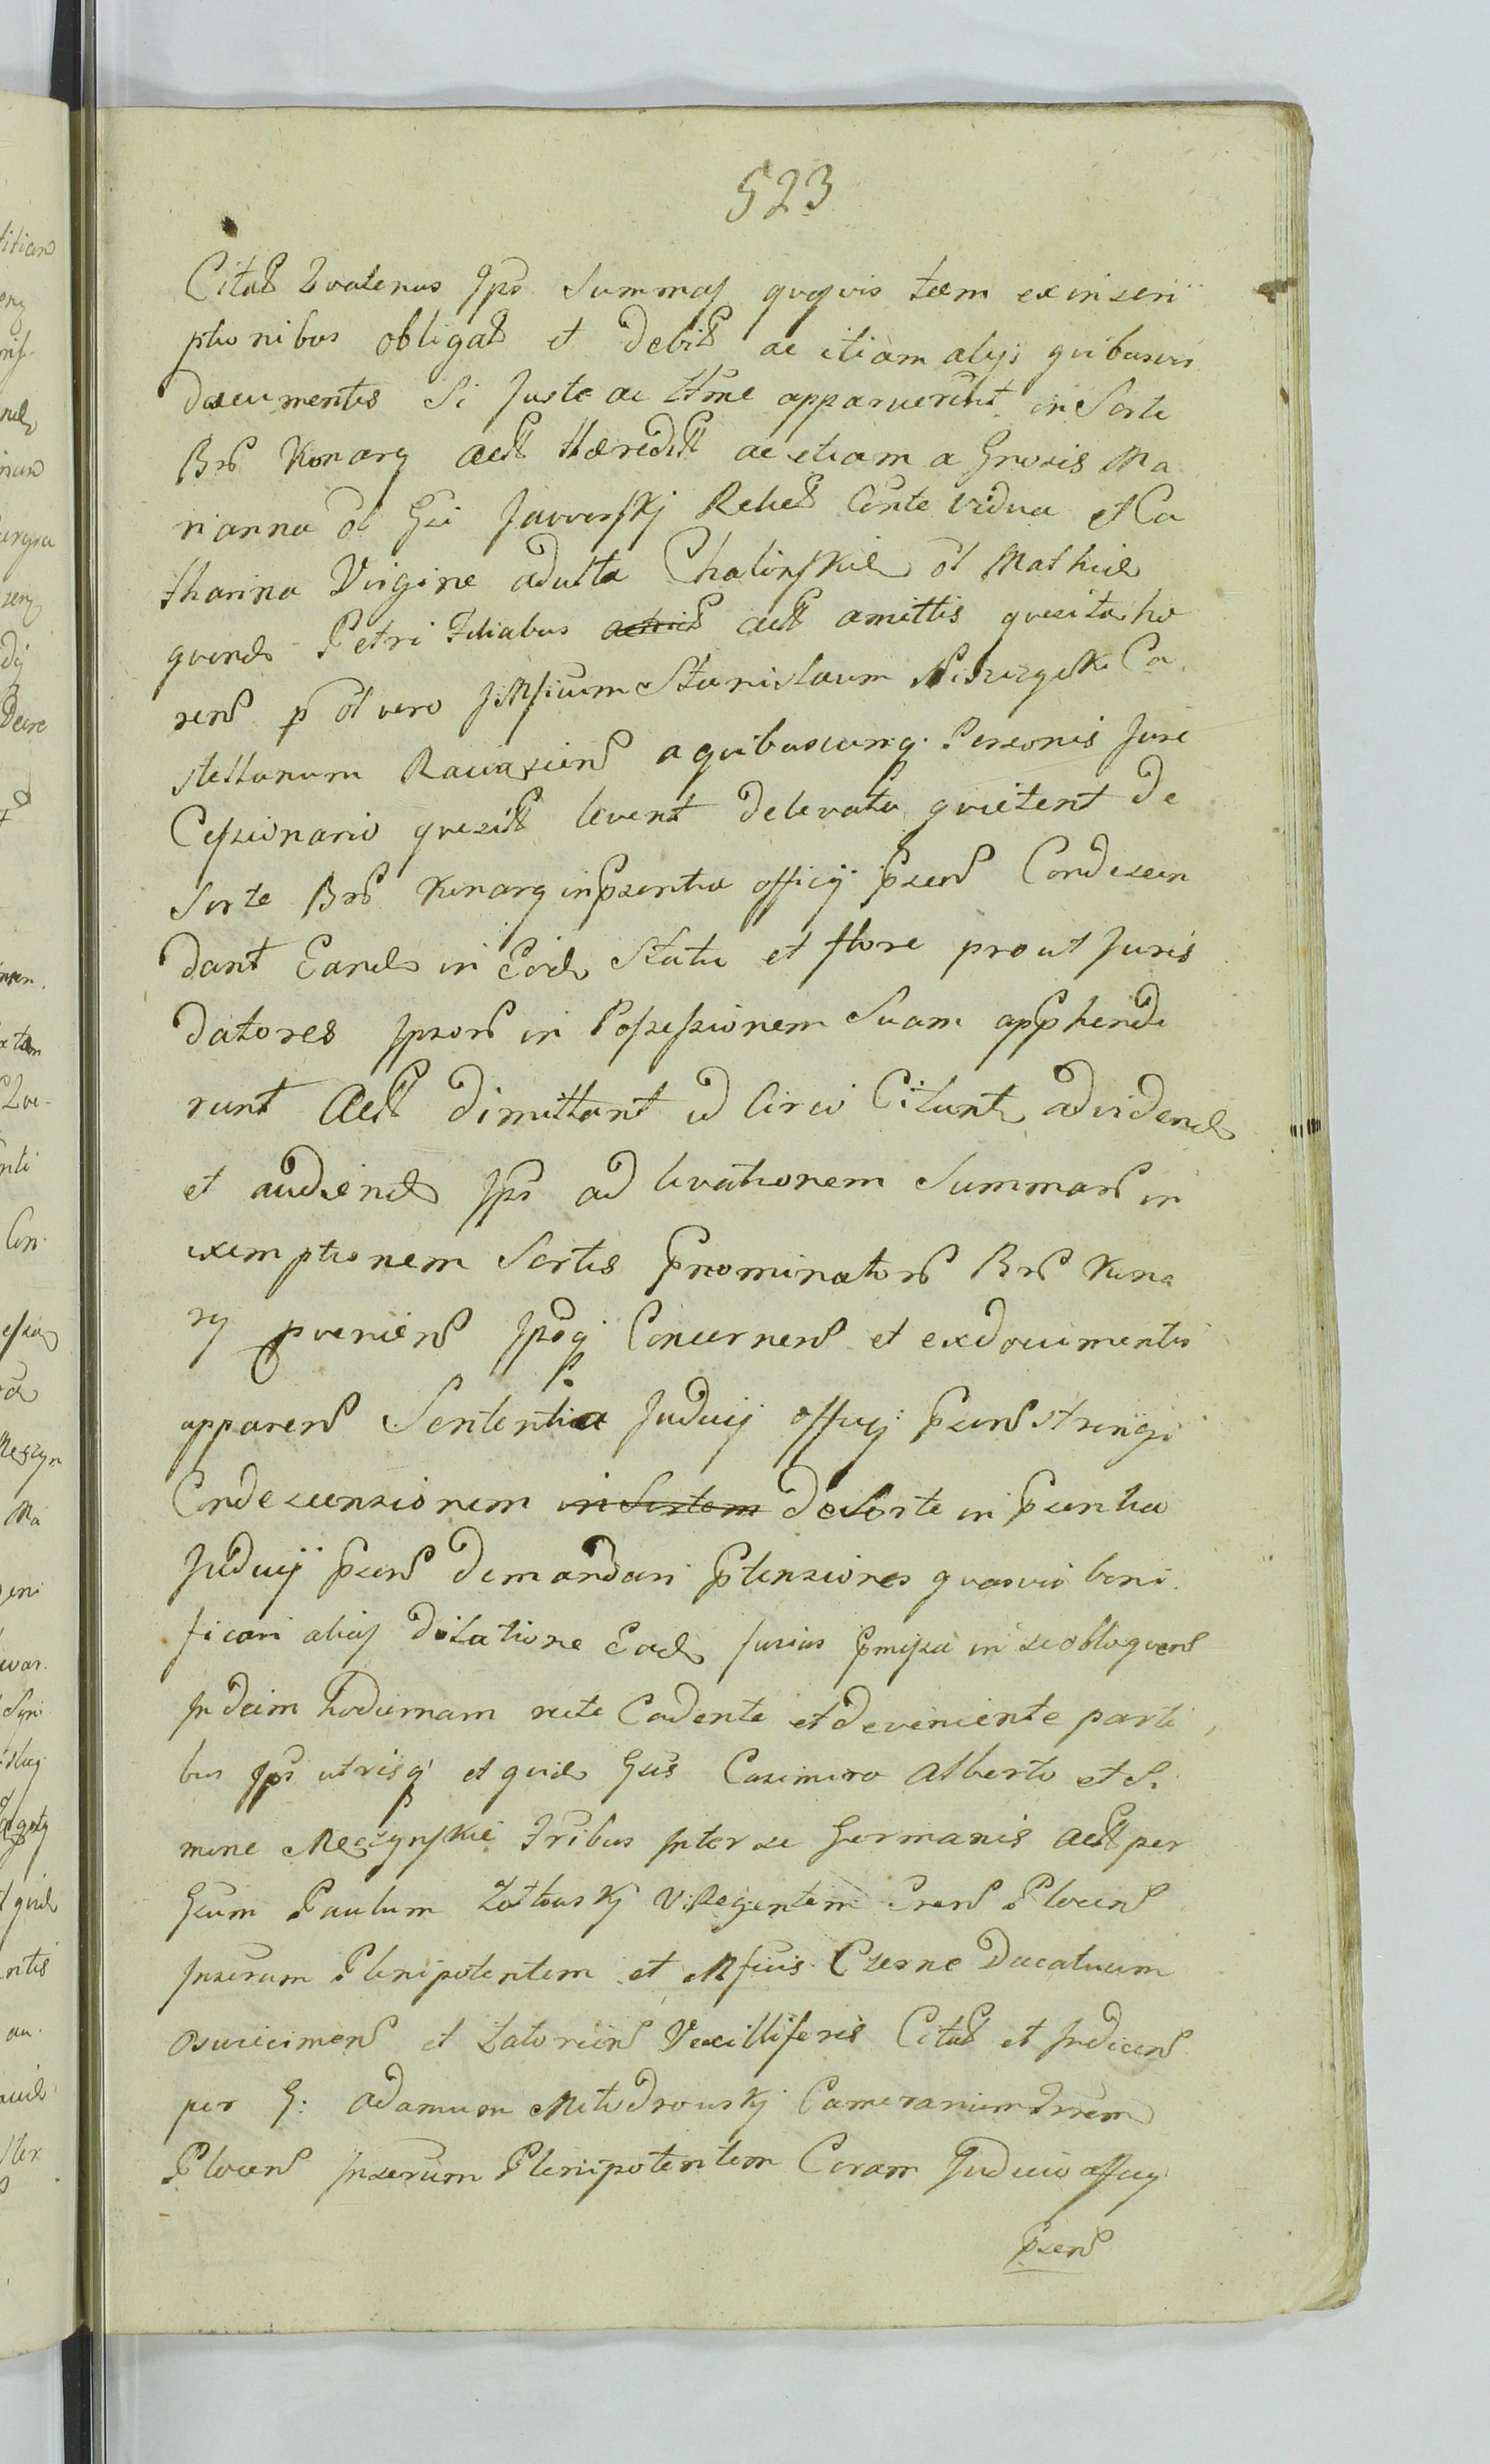 523
Citat Quatenus Ipsi Summas quovis taem ex inscri
ptionibus obligat et debit ac etiam alijs quibusvis
documentis Si Juste ac Ltme apparuerint in Sorte
Bnr Konary actt Hæredit ac etiam a Gnosis Ma
rianna ol Gsi Jaworskj Relict Conte vidua et Ca
tharina Virgine adulta Chalinskie ol Mathie
quond Petri Filiabus actt amittis quæsita ho
rens p ol vero JMsicum Stanislaum Nisczycki Ca
stellanum Raciaziens a quibuscunq Personis Jure
Cessionario quæsit levent delevata quietent De
Sorte Bnr Konary in Psentia officij Psens Condescen
dant Eand in Eod Statu et flore prout Juris
datores Ipsor in Possessionem Suam apphende
runt Actt dimittant id Circo Citant ad vidend
et audiend Ipsi ad levationem Summar in
exemptionem Sortis Pnominator Bnr Kona
ry pveniens Ipsoq Concernens et ex documentis
apparens Sententia Judicij officij Psens stringi
Condescensionem in Sortem de Sorte in Psentia
Judicij Psens demandari Ptensiones quasvis boni
ficari alias dilatione Ead Jurius Pmissa in se obloquens
In diem hodiernam rite Cadente et deveniente parti
bus Ipsis utrisq et quid Gsis Casimiro Alberto et Si
mone Meczynskie Fribus Inter se Germanis actt per
Gsum Paulum Zottowskj V: Regentem Cren Plocens
Juserum Plenipotentem et Mficis Czerne Ducatuum
Oswiecimens et Zatoriens Vexilliferis Citat et Indicens
per G: Adamum Modrowskj Camerarium Trrem
Plocens Juserum Plenipotentem Coram Judicio officij
Psens